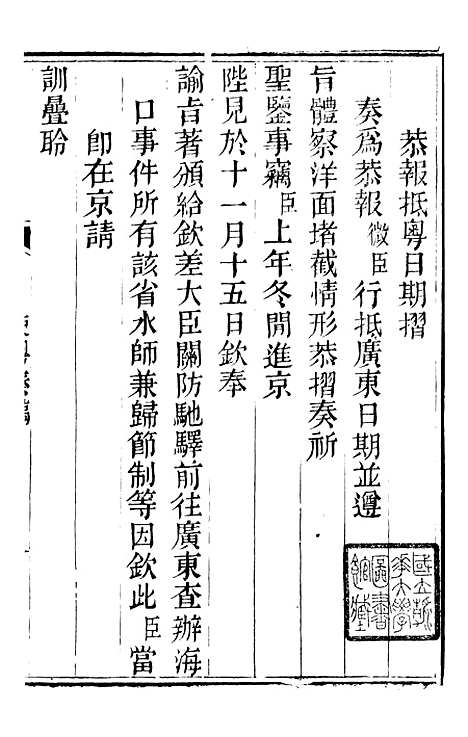 恭報抵粵日期摺
奏爲恭報微臣行抵廣東日期並遵
旨體察洋面堵截情形恭摺奏祈
聖鑒事竊臣上年冬間進京
陛見於十一月十五日欽奉
諭旨著頒給欽差大臣關防馳驛前往廣東查辦海
口事件所有該省水師兼歸節制等因欽此臣當
卽在京請
訓疊聆
國立
大學
圖書
館藏